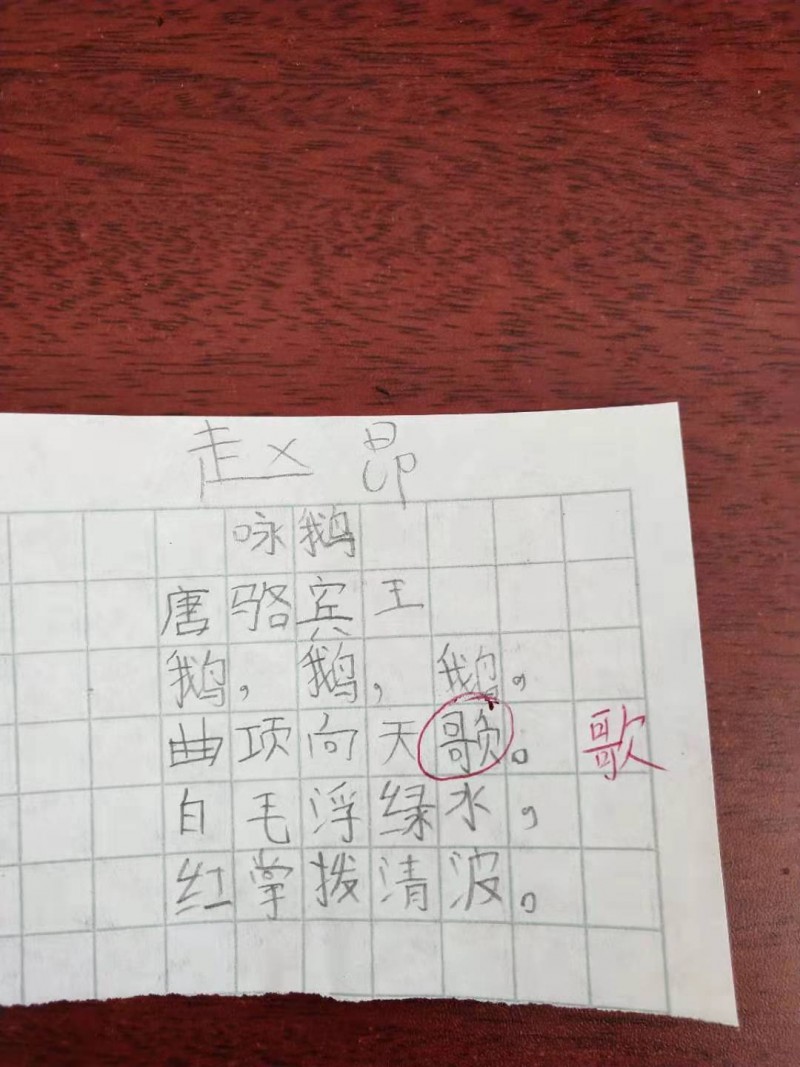 赵昂
咏鹅
唐骆宾王
鹅，鹅，鹅，
曲项向天歌。歌
白毛浮绿水，
红掌拨清波。